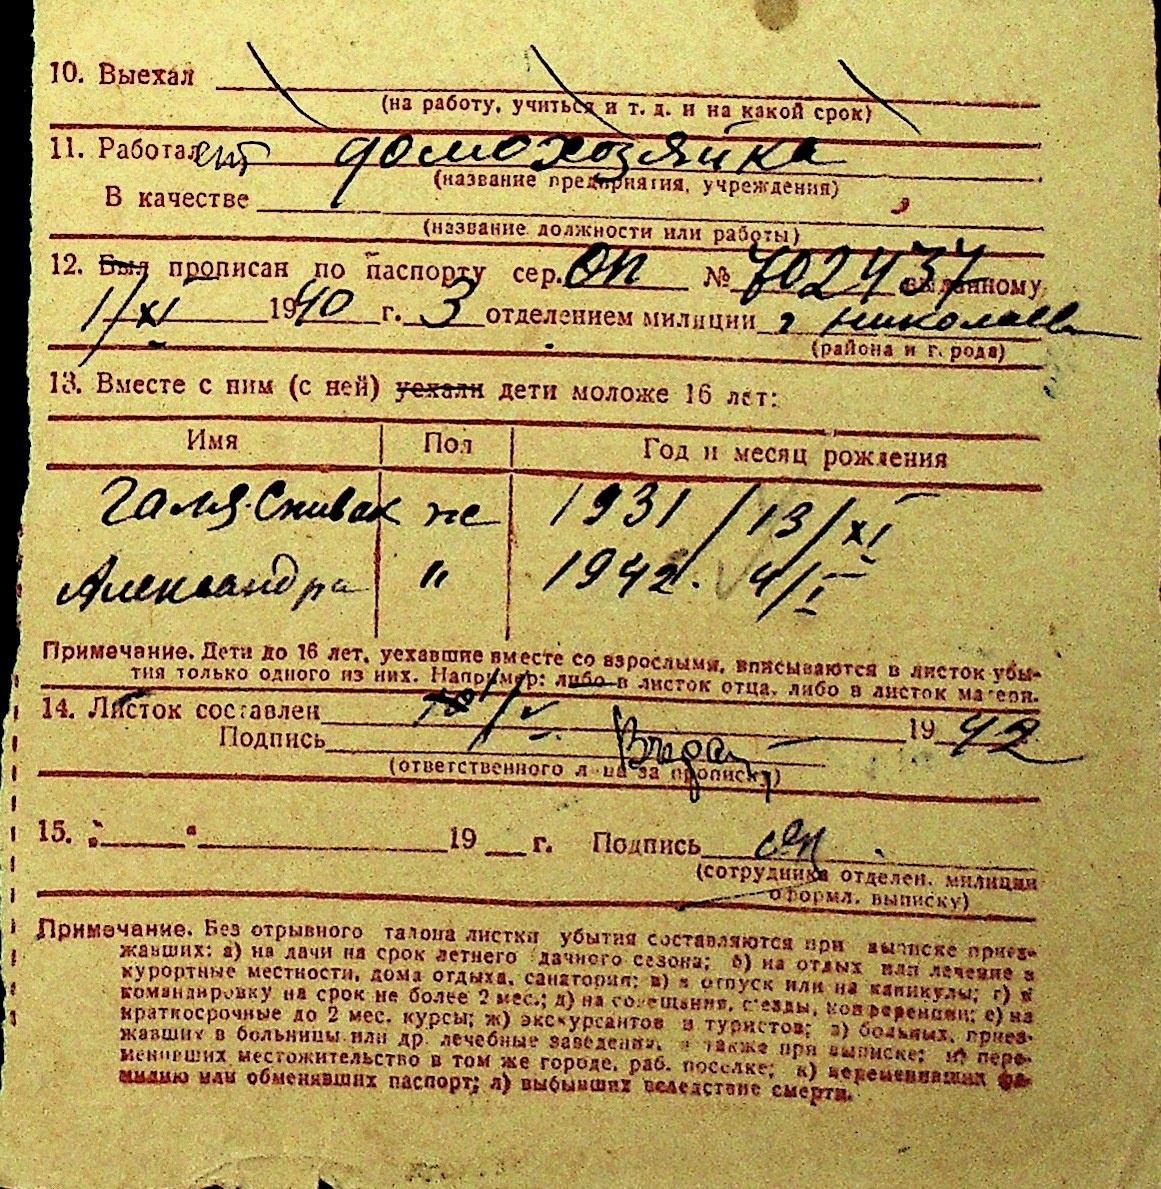 10. Выехал
(на работу, учиться и т. д. и на какой срок)
11. Работает домохозяйка
(название предприятия, учреждения)
В качестве
(название должности или работы)
12. Был прописан по паспорту сер. ОП № 702437 выданному
1/XI 1940 г. 3 отделением милиции г Николаев
(района и г. рода)
13. Вместе с ним (с ней) уехали дети моложе 16 лет:
Имя Пол Год и месяц рождения
Галя Спивак же 1931 / 13/XI
Александра " 1942. 4/I
Примечание. Дети до 16 лет, уехавшие вместе со взрослыми, вписываются в листок убы-
тия только одного из них. Например: либо в листок отца, либо в листок матери.
14. Листок составлен /V 1942
Подпись
(ответственного лица за прописку)
15. „ “ 19 г. Подпись
(сотрудника отделен. милиции
оформл. выписку)
Примечание. Без отрывного талона листки убытия составляются при выписке приез-
жавших: а) на дачи на срок летнего дачного сезона; б) на отдых или лечение в
курортные местности, дома отдыха, санатории; в) в отпуск или на каникулы; г) в
командировку на срок не более 2 мес.; д) на совещания, с'езды, конференции; е) на
краткосрочные до 2 мес. курсы; ж) экскурсантов и туристов; з) больных, приез-
жавших в больницы или др. лечебные заведения, а также при выписке; и) пере-
менивших местожительство в том же городе, раб. поселке; к) переменивших фа-
милию или обменявших паспорт; л) выбывших вследствие смерти.